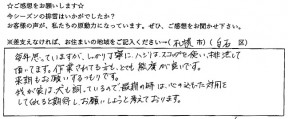 ☆ご感想をお願いします☆
今シーズンの排雪はいかがでしたか?
お客様の声が、私たちの原動力になっています。ぜひ、ご感想をお聞かせ下さい。
※差支えなければ、お住まいの地域をご記入ください→(札幌市)(白石区)
毎年思っていますが、しっかり丁寧に、ハシゴ、スコップを使い、排雪して
頂いてます。作業されてる方も、とても態度が良いです。
来期もお願いするつもりです。
我が家は、犬も飼っているので、散歩の時は、心のこもった対応を
してくれると期待しお願いしようと考えております。